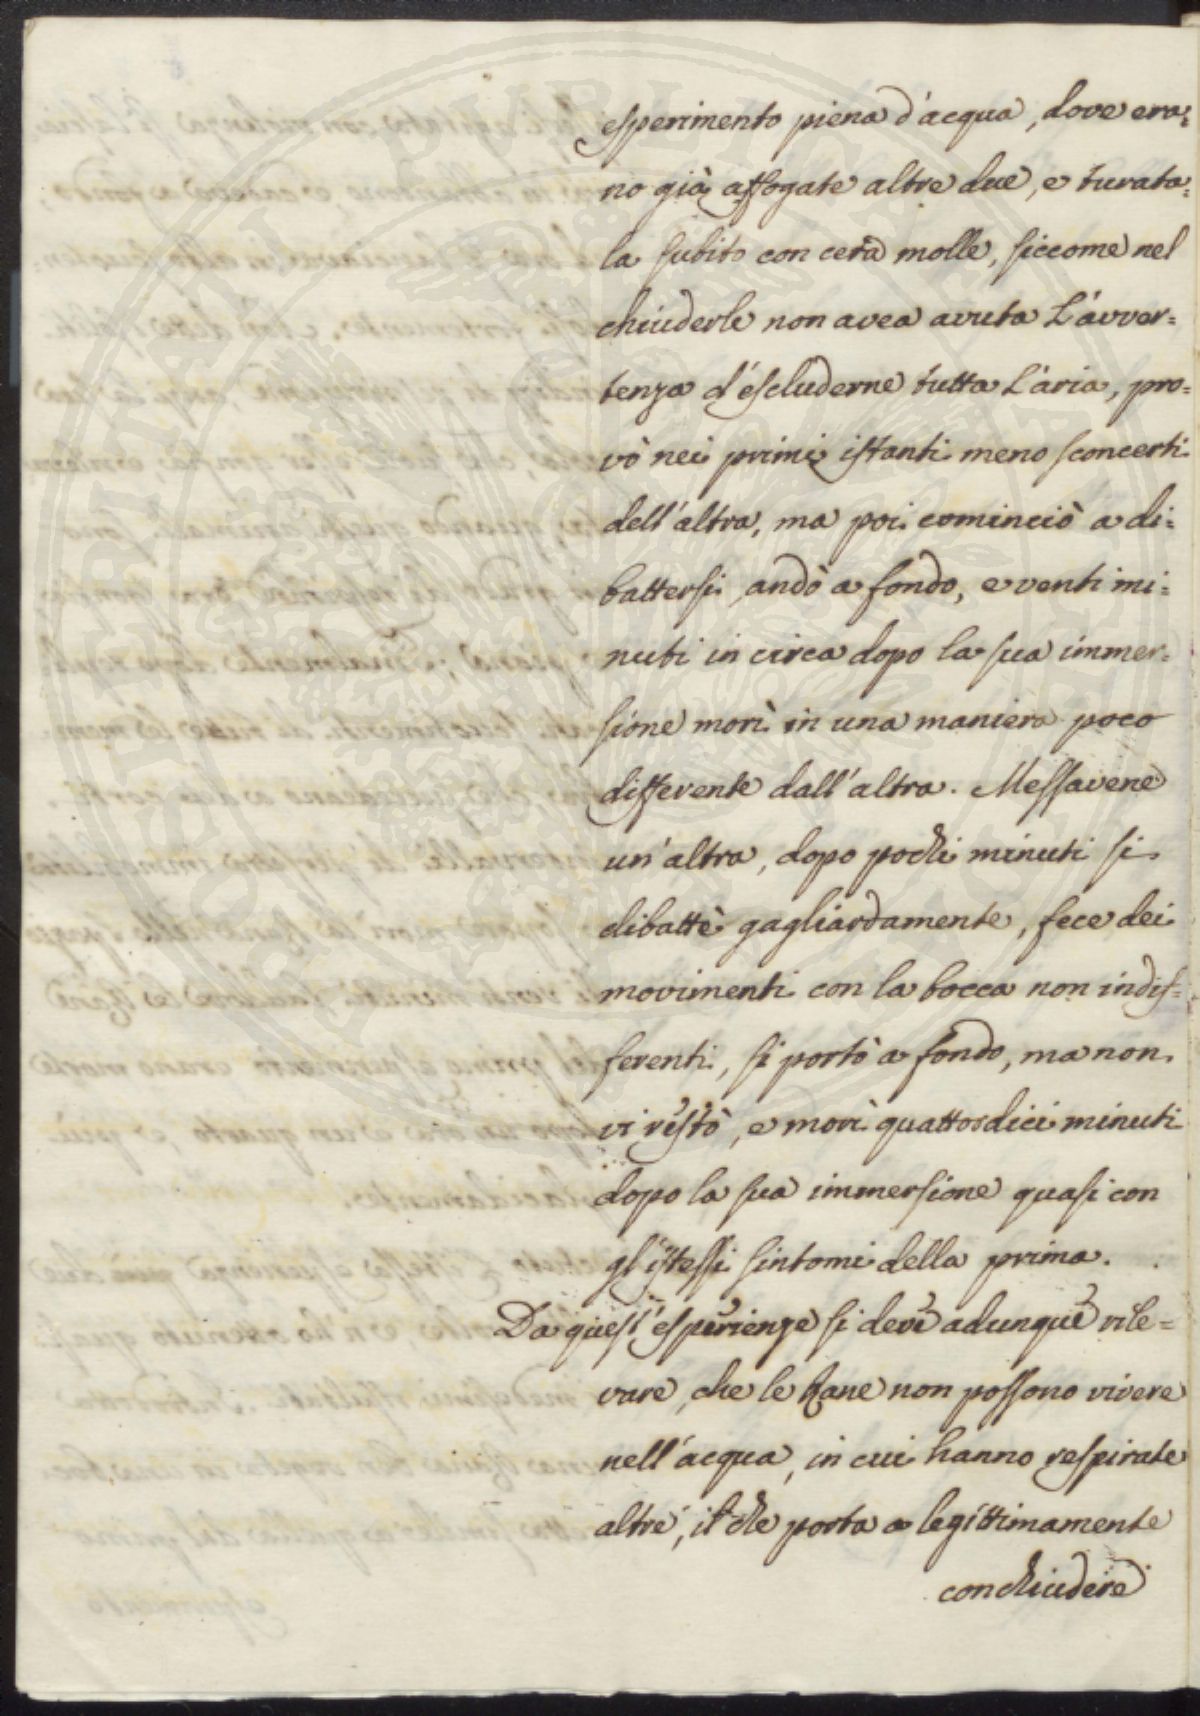 esperimento piena d'acqua, dove era=
no già affogate altre due, e turata=
la subito con cera molle, siccome nel
chiuderle non avea avuta l'avver=
tenza d'escluderne tutta l'aria, pro=
vò nei primi istanti meno sconcerti
dell'altra, ma poi cominciò a di=
battersi, andò a fondo, e venti mi=
nuti in circa dopo la sua immer=
sione morì in una maniera poco
differente dall'altra. Messavene
un'altra, dopo pochi minuti si
dibattè gagliardamente, fece dei
movimenti con la bocca non indif=
ferenti, si portò a fondo, ma non
vi restò, e morì quattordici minuti
dopo la sua immersione quasi con
gl'istessi sintomi della prima.
Da quest'esperienze si deve adunque rile=
vare, che le Rane non possono vivere
nell'acqua, in cui hanno respirate
altre, il che porta a legittimamente
conchiudere